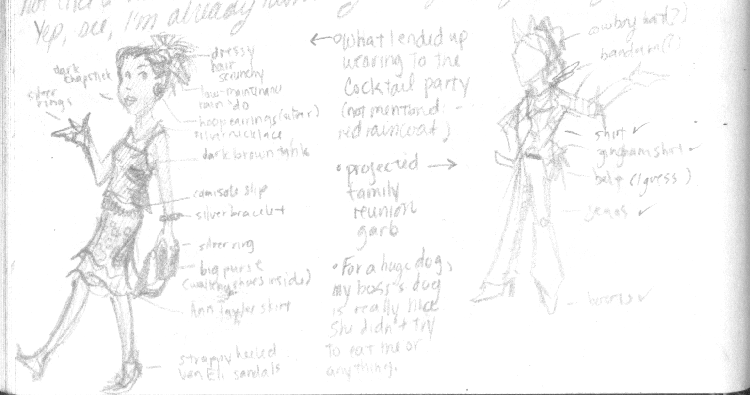 Yep, see, I'm already
dark
chapstick
silver
rings
dressy
hair
scrunchy
low-maintenance
rain 'do
hoop earrings (silver)
silver necklace
dark brown tank
camisole slip
silver bracelet
silver ring
big purse
(walking shoes inside)
Ann Taylor skirt
strappy heeled
sandals
• What I ended up
wearing to the
Cocktail party
(not mentioned:
red raincoat)
• projected
family
reunion
garb
• For a huge dog,
my boss's dog
is really like
She didn't try
to eat me or
anything.
cowboy hat(?)
bandana(?)
shirt ✓
gingham shirt ✓
belt (I guess)
jeans ✓
boots ✓